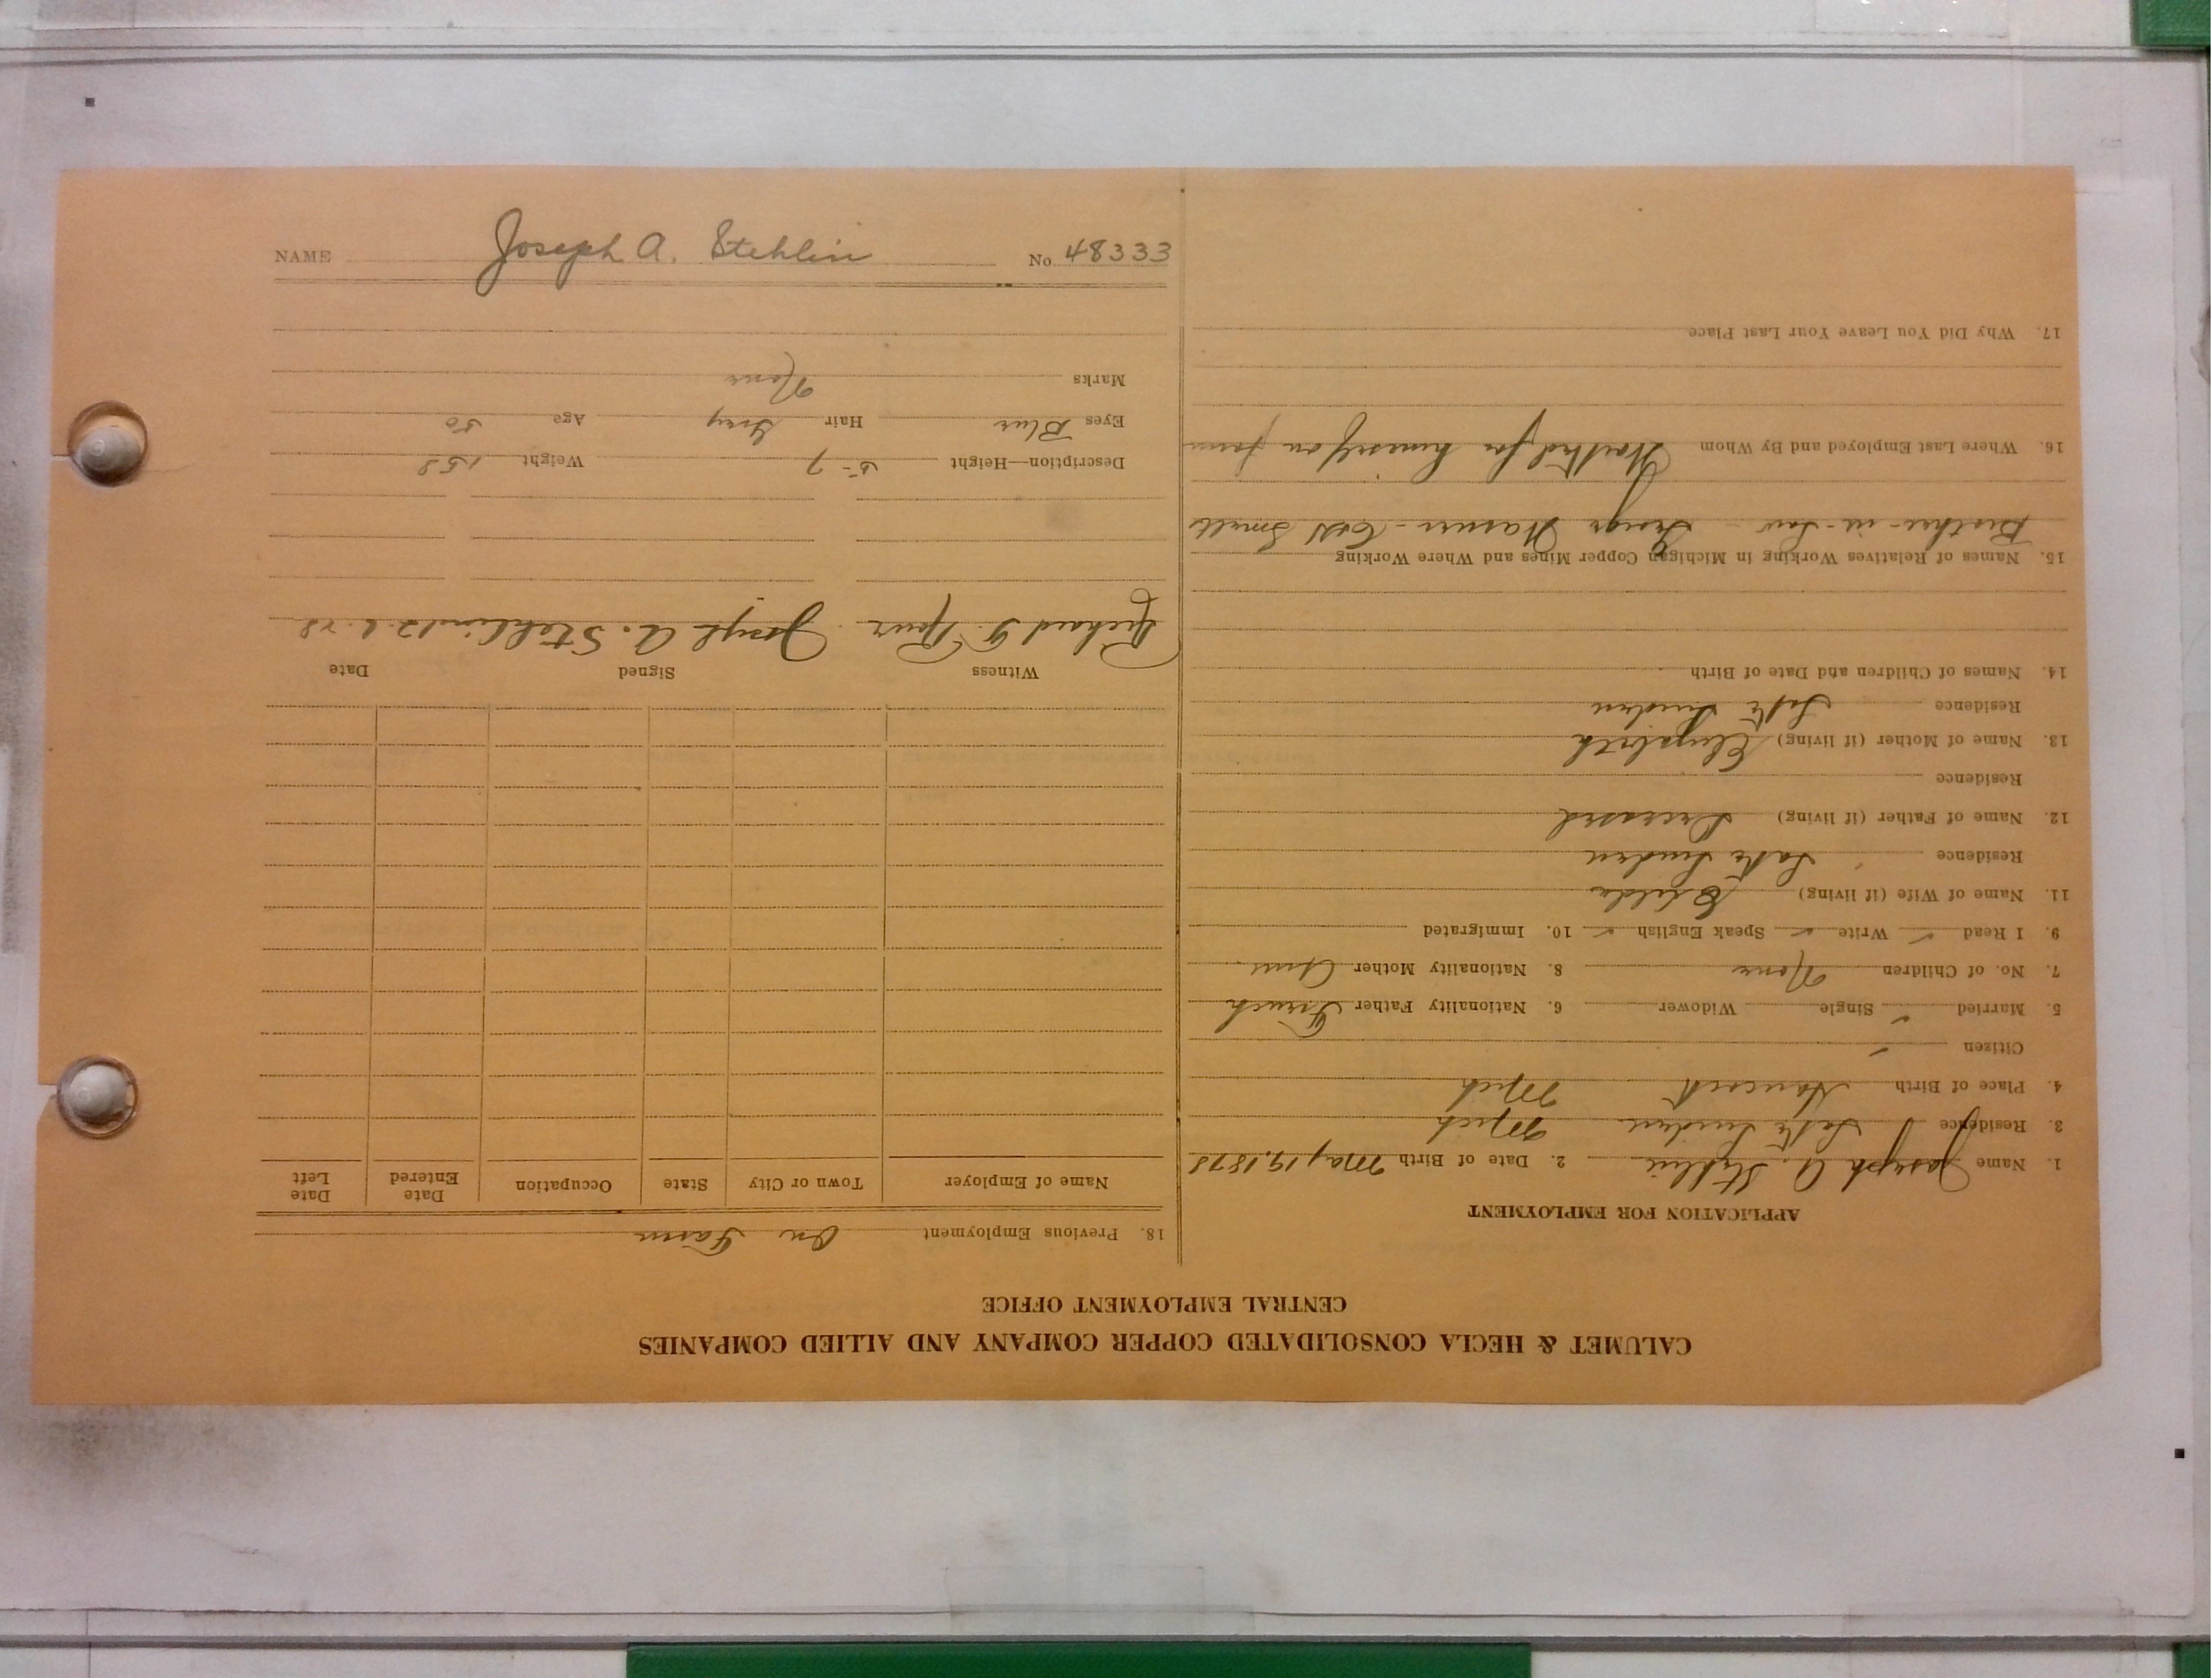 NAME Joseph A. Stehlin No 48333
CALUMET & HECLA CONSOLIDATED COPPER COMPANY AND ALLIED COMPANIES
CENTRAL EMPLOYMENT OFFICE
APPLICATION FOR EMPLOYMENT
1. Name Joseph A. Stehlin 2. Date of Birth May 19, 1878
3. Residence Lake Linden Mich
4. Place of Birth Hancock Mich
Citizen ✓
5. Married ✓ Single Widower 6. Nationality Father French
7. No. of Children None 8. Nationality Mother
9. I Read ✓ Write ✓ Speak English ✓ 10. Immigrated
11. Name of Wife (if living)
Residence Lake Linden
12. Name of Father (if living) Deceased
Residence
13. Name of Mother (if living) Elizabeth
Residence Lake Linden
14. Names of Children and Date of Birth
15. Names of Relatives Working in Michigan Copper Mines and Where Working
Brother-in-Law George
16. Where Last Employed and By Whom Worked for himself on farm
17. Why Did You Leave Your Last Place
18. Previous Employment On Farm
Name of Employer Town or City State Occupation Date Entered Date Left
Witness Signed Date
Richard Joseph A. Stehlin
Description—Height 5-7 Weight 158
Eyes Blue Hair Grey Age 50
Marks None